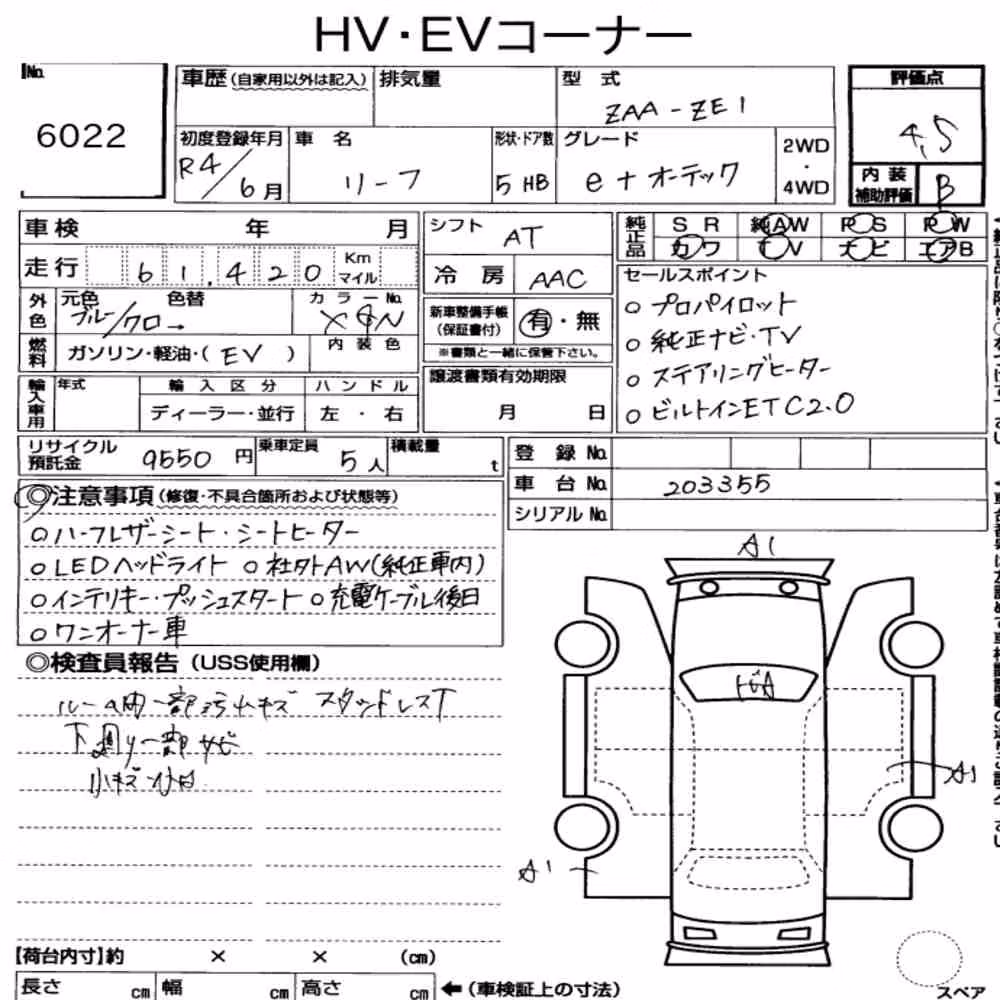 HV・EVコーナー
No. 6022
車歴(自家用以外は記入) 排気量 型式 ZAA-ZE1 評価点 4.5
初度登録年月 R4/6月 車名 リーフ 形状・ドア数 5HB グレード e+オーテック 2WD・4WD 内装補助評価 B
車検 年 月 シフト AT 純正品 SR 純AW PS PW
カワ TV ナビ エアB
走行 61,420 Km マイル 冷房 AAC
セールスポイント
外色 元色 ブルー/クロ→ 色替 カラーNo. XGN 新車整備手帳(保証書付) 有・無
○プロパイロット
燃料 ガソリン・軽油・(EV) 内装色 ※書類と一緒に保管下さい。
○純正ナビ・TV
輸入車用 年式 輸入区分 ハンドル 譲渡書類有効期限
○ステアリングヒーター
ディーラー・並行 左・右 月 日
○ビルトインETC2.0
リサイクル預託金 9550円 乗車定員 5人 積載量 t
登録No.
車台No. 203355
シリアルNo.
◎注意事項(修復・不具合箇所および状態等)
○ハーフレザーシート・シートヒーター
○LEDヘッドライト ○社外AW(純正車内)
○インテリキー・プッシュスタート ○充電ケーブル後日
○ワンオーナー車
◎検査員報告(USS使用欄)
ルーム内一部汚れキズ スタッドレスT
下廻り一部サビ
小キズ
A1
A1
A1
【荷台内寸】約 × × (cm)
長さ cm 幅 cm 高さ cm ←(車検証上の寸法)
スペア